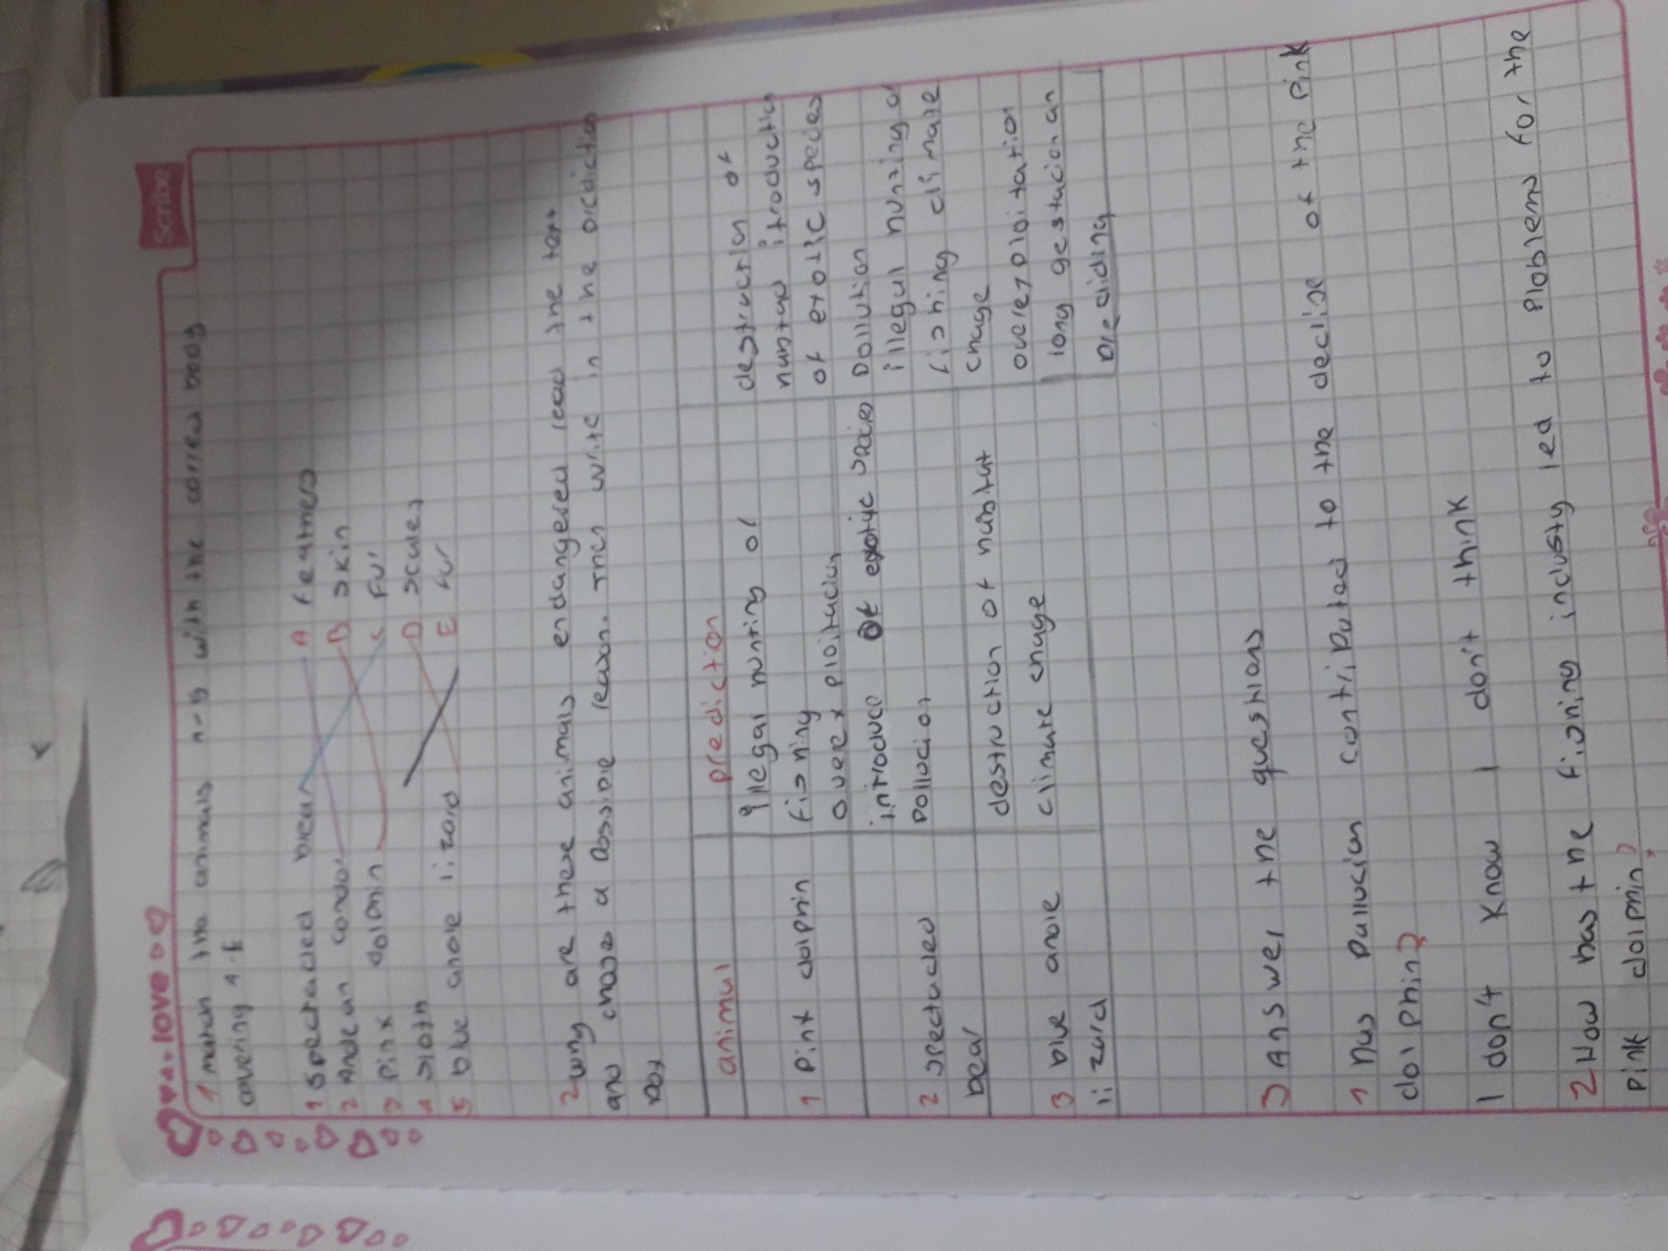 love
Scribe
1 match the animals 1-5 with the correct body
covering A-E
1 spectacled bear A feathers
2 Andean condor B skin
3 pink dolphin C fur
4 sloth D scales
5 blue anole lizard E fur
2 why are these animals endangered read the text
and choose a possible reason. Then write in the prediction
box
animal prediction
1 pink dolphin illegal hunting of
fishing
overexploitacion
destruction of
habitad itroduction
of exotic species
pollution
2 spectacled
bear introduce of exotic species
pollucion
illegal hunting of
fishing climate
chage
3 blue anole
lizard destruction of habitat
climate chage
overexploitation
long gestacion an
breeding
3 Answer the questions
1 Has pollucion contributed to the declise of the pink
dolphin?
I don't know I don't think
2 How has the fishing industy led to problems for the
pink dolphin?